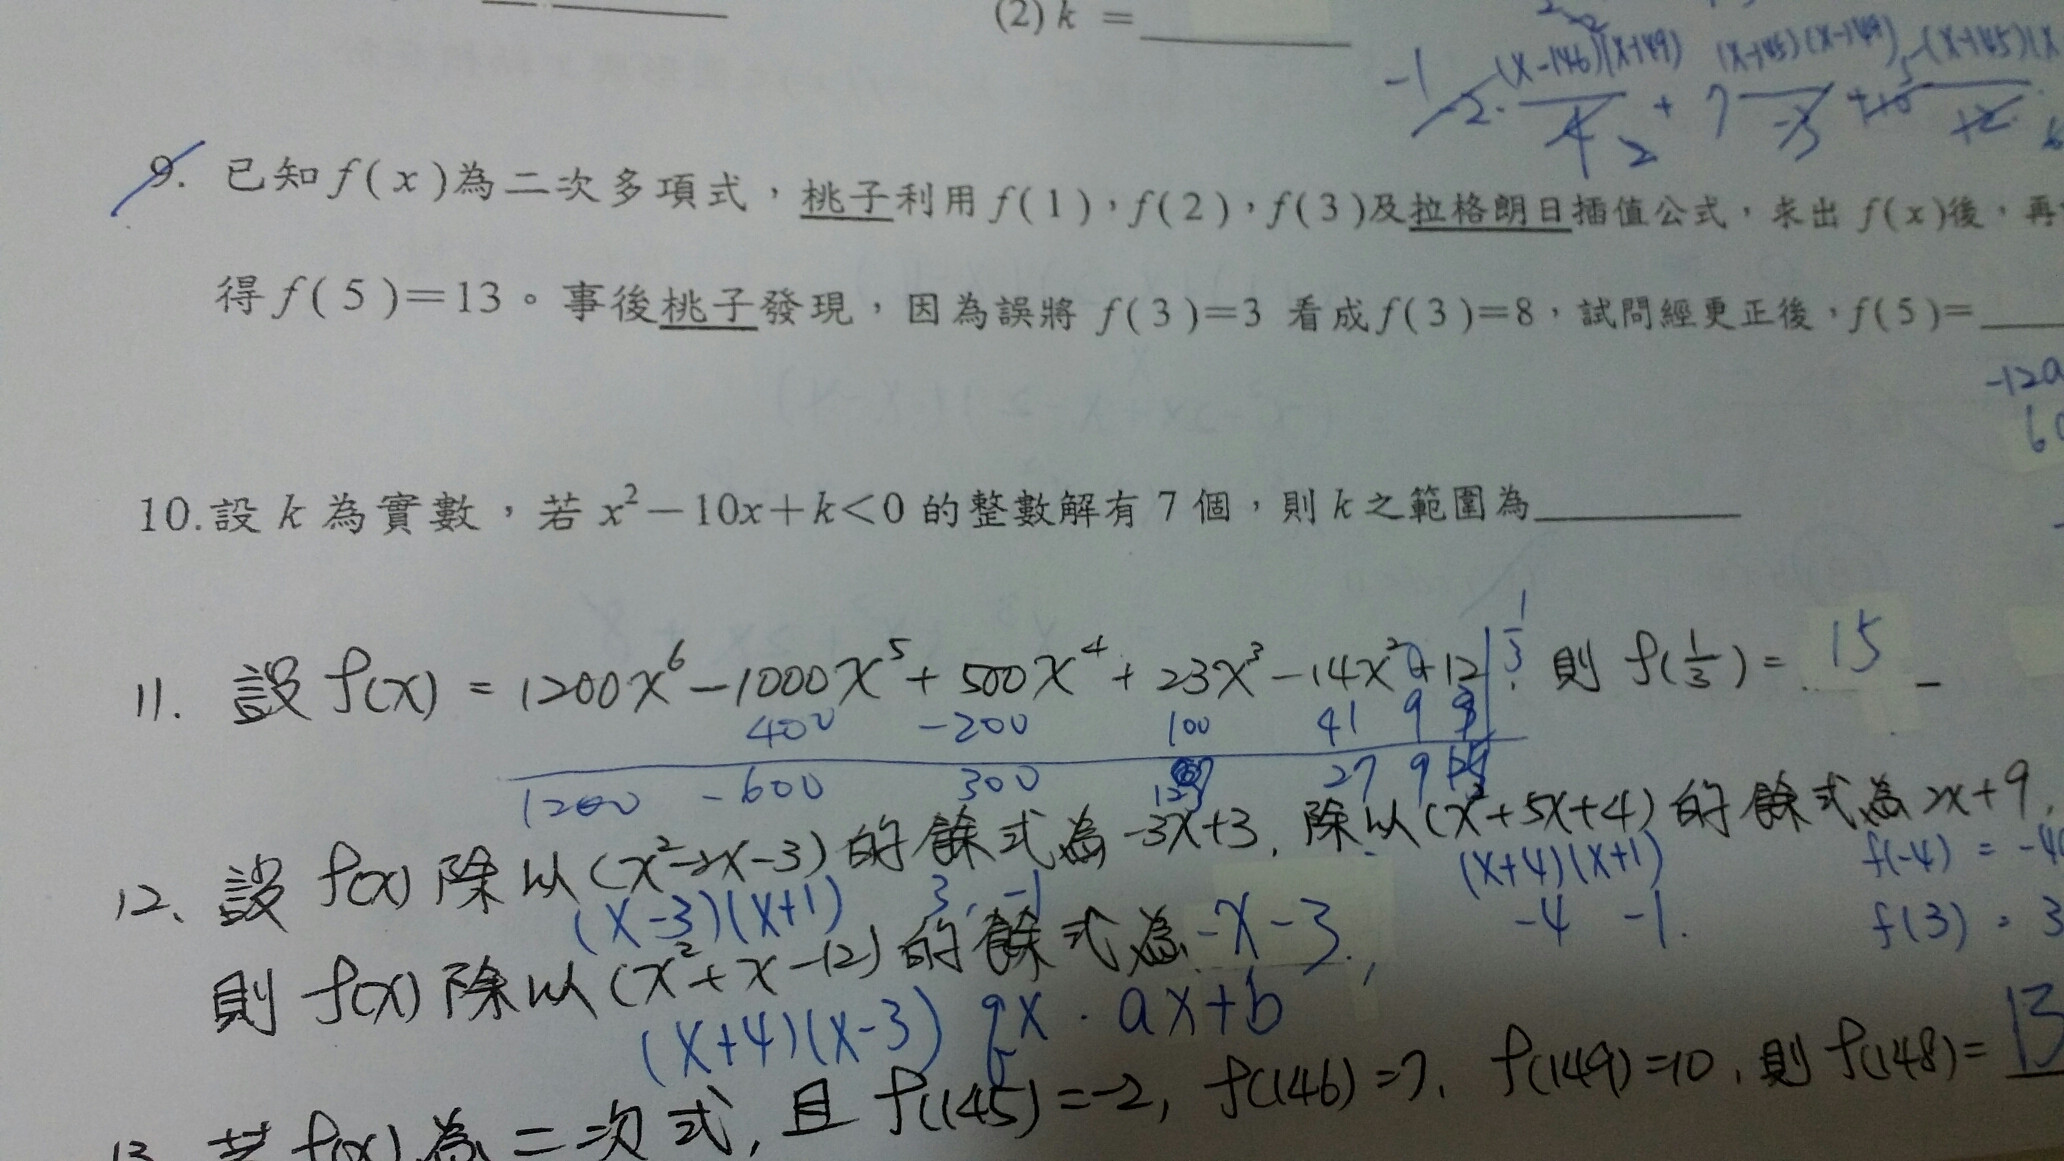 (2) k =
-1 -2· (x-146)(x-149) / 4 2 + 7 (x-145)(x-149) / -3
9. 已知 f(x)為二次多項式,桃子利用 f(1),f(2),f(3)及拉格朗日插值公式,求出 f(x)後,再
得 f(5)=13。事後桃子發現,因為誤將 f(3)=3 看成 f(3)=8,試問經更正後,f(5)=
10.設 k 為實數,若 x²-10x+k<0 的整數解有 7 個,則 k 之範圍為
11. 設 f(x) = 1200x⁶-1000x⁵+500x⁴+23x³-14x²+12. 則 f(1/3) = 15
400 -200 100 41 9 1/3
1200 -600 300 123 27 9 15
12、設 f(x) 除以 (x²-2x-3) 的餘式為 -3x+3, 除以 (x²+5x+4) 的餘式為 2x+9,
(x-3)(x+1) 3, -1 (x+4)(x+1) f(-4) =
-4 -1. f(3) = 3
則 f(x) 除以 (x²+x-12) 的餘式為 -x-3.
(x+4)(x-3) qx · ax+b
13 若 f(x) 為二次式, 且 f(145)=-2, f(146)=7, f(149)=10, 則 f(148)= 13